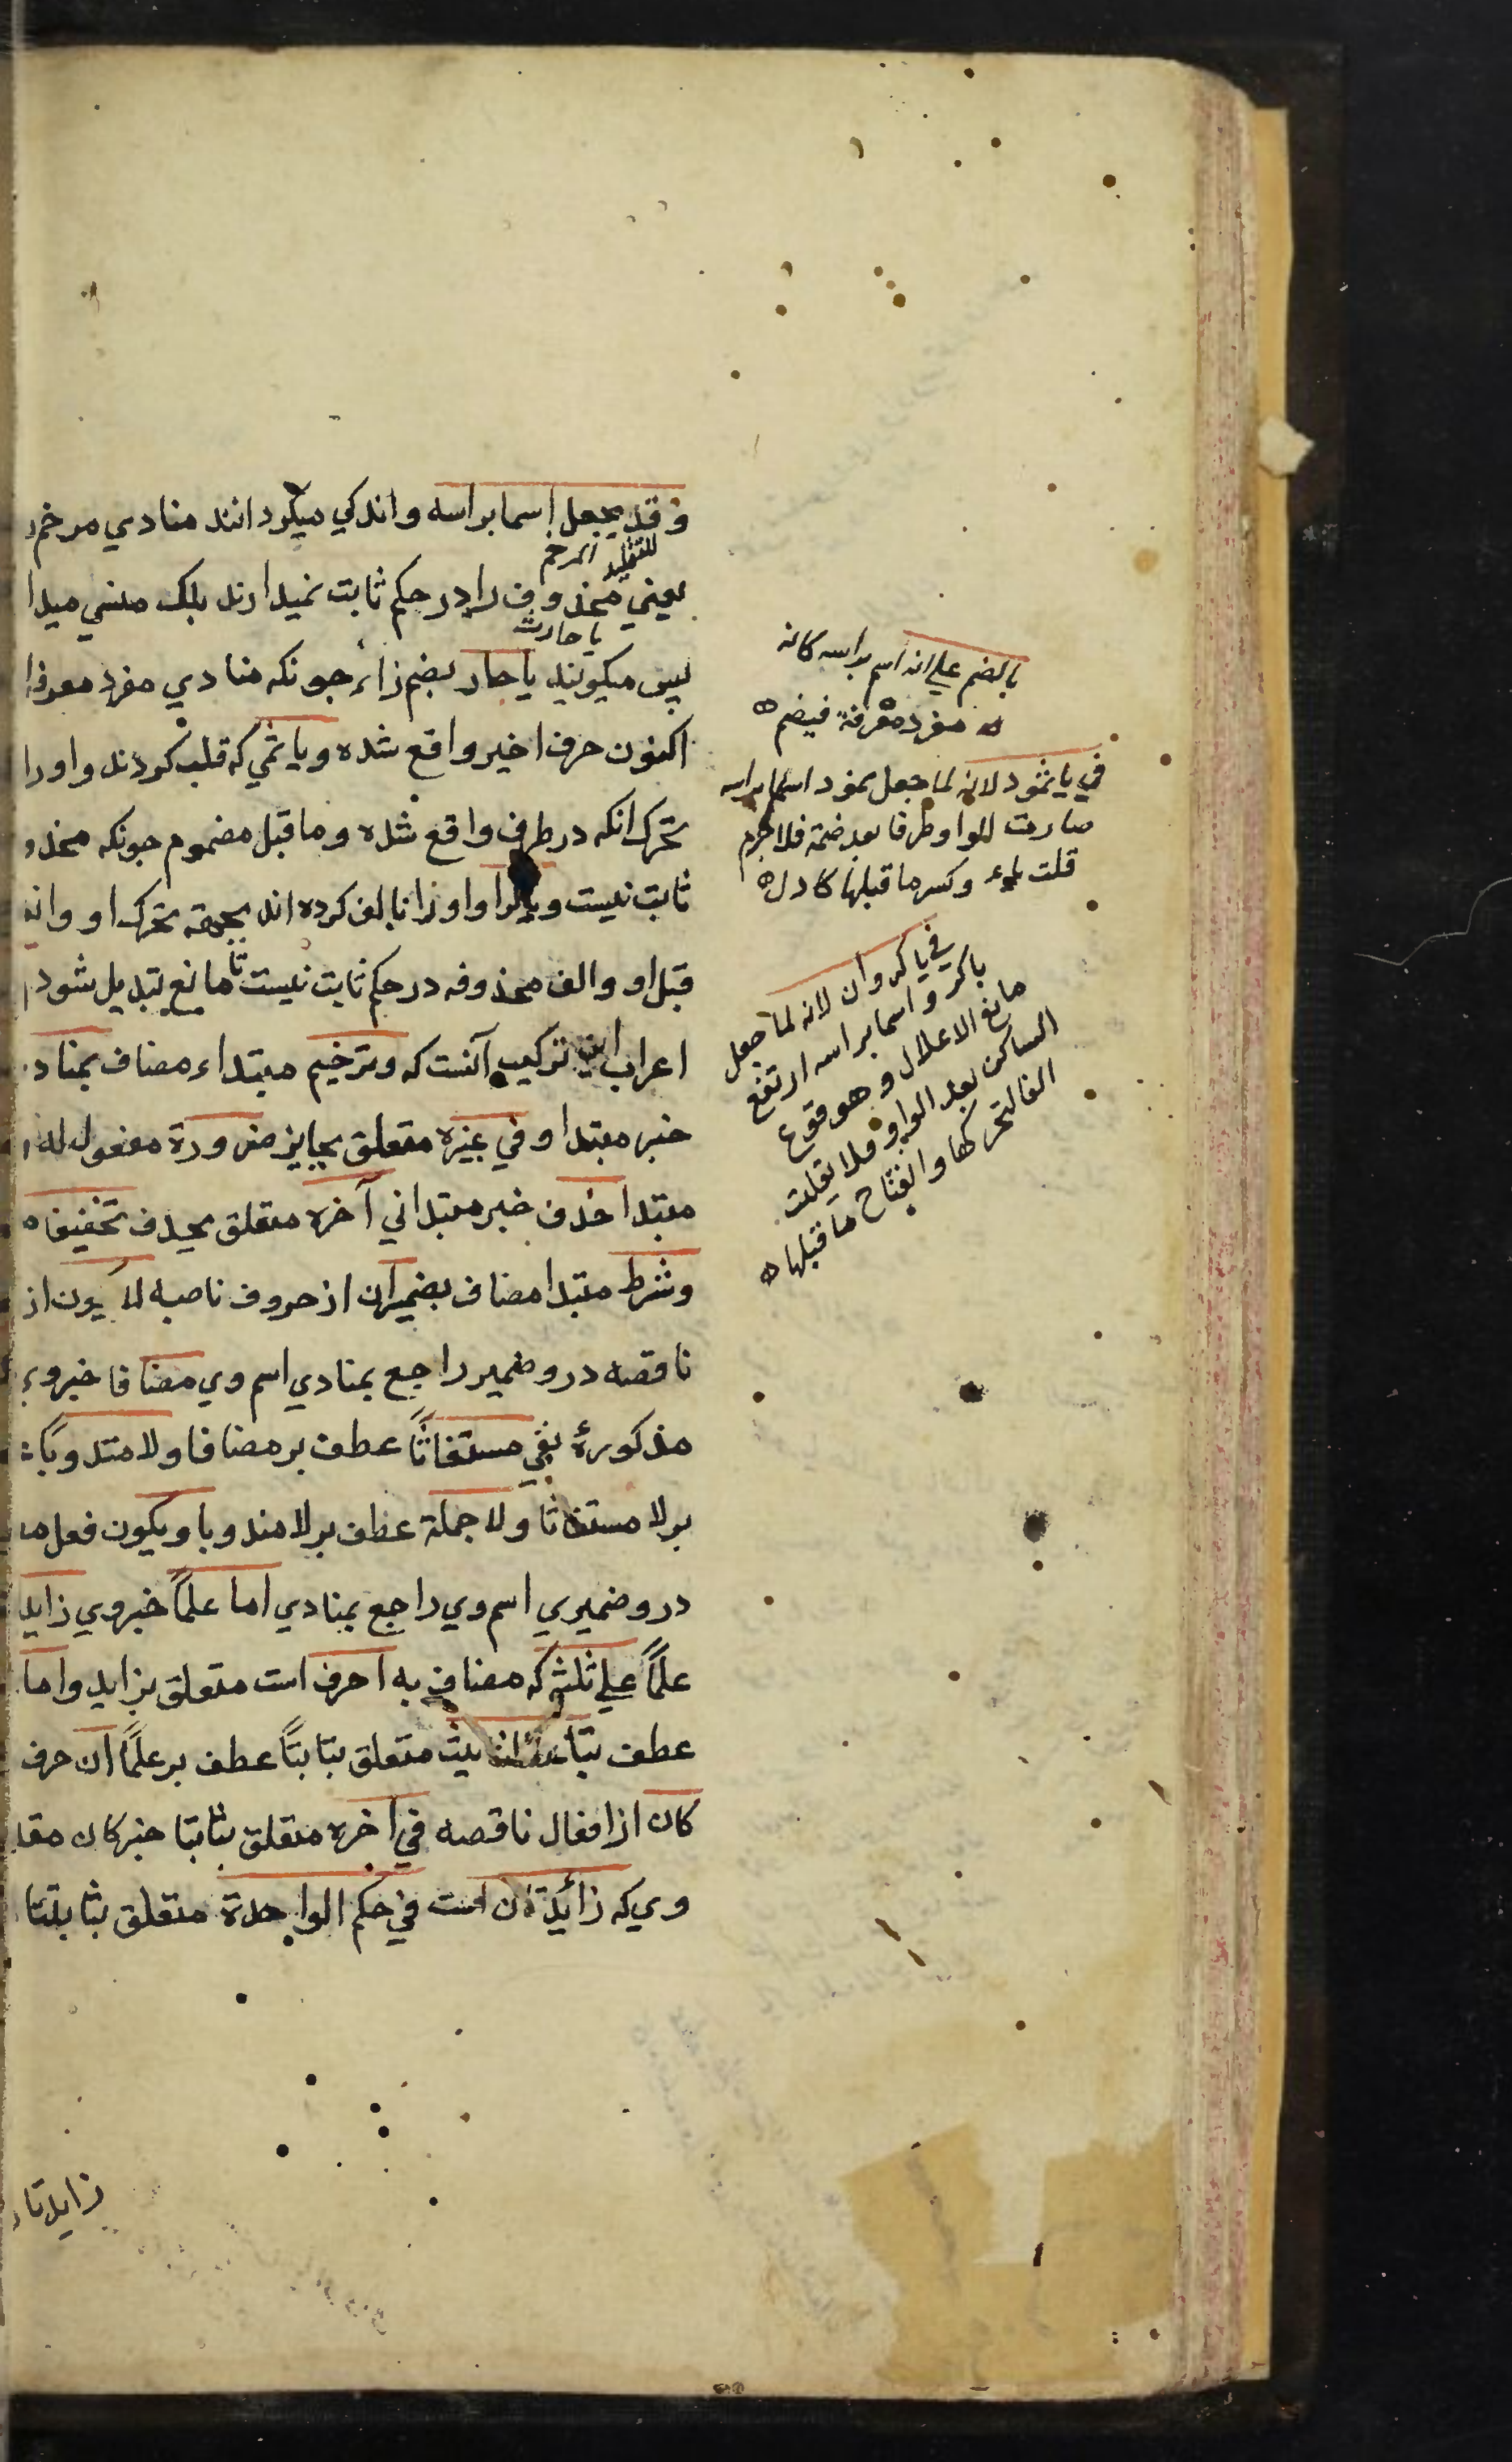 وقد يجعل اسما براسه واندكي ميكردانند منادي مرخم
للتقليل المرخم
يعني محذوف را در حكم ثابت نميدارند بلك منسي ميدا
يا حارث
پس ميكويند يا حار بضم زاء چونكه منادي مفرد معرفه
اكنون حرف اخير واقع شده ويا ثمي كه قلب كردند واو را
تحرك انكه در طرف واقع شده وما قبل مضموم چونكه محذو
ثابت نيست ويا كرا واو را بالف كرده اند بجهة تحرك او وا
قبل او والف محذوفه در حكم ثابت نيست تا مانع تبديل شود
اعراب اين تركيب آنست كه وترخيم مبتداء مضاف بمناد
خبر مبتدا وفي غيره متعلق بجايز ضرورة مفعول له
مبتدا حذف خبر مبتدا في آخره متعلق بحذف تخفيفا
وشرط مبتدا مضاف بضمير ان از حروف ناصبه لا يكون از
ناقصه درو ضمير راجع بمنادي اسم وي مضافا خبر وي
مذكورۀ نفي مستغاثاً عطف بر مضافا ولا مندوبا
بر لا مستغاثا ولا جملة عطف بر لا مندوبا ويكون فعل
درو ضميري اسم وي راجع بمنادي اما علماً خبر وي زايد
علماً علي ثلثة كه مضاف به احرف است متعلق بزايد واما
عطف بتاء التانيث متعلق بثابتاً عطف بر علماً ان حرف
كان از افعال ناقصه في اخره متعلق بثابتا خبر كان مقد
وي كه زائدتان است في حكم الواحدة متعلق بثابتتا
زايدتا
بالضم علي انه اسم براسه كانه
مفرد معرفة فيضم
في يا ثمود لانه لما جعل ثمود اسما براسه
صارت الواو طرفا بعد ضمة فلا جرم
قلبت ياء وكسر ما قبلها كادل
في يا كروان لانه لما جعل
ياكرو اسما براسه ارتفع
مانع الاعلال وهو وقوع
الساكن بعد الواو فلا يقلب
الفا لتحركها وانفتاح ما قبلها